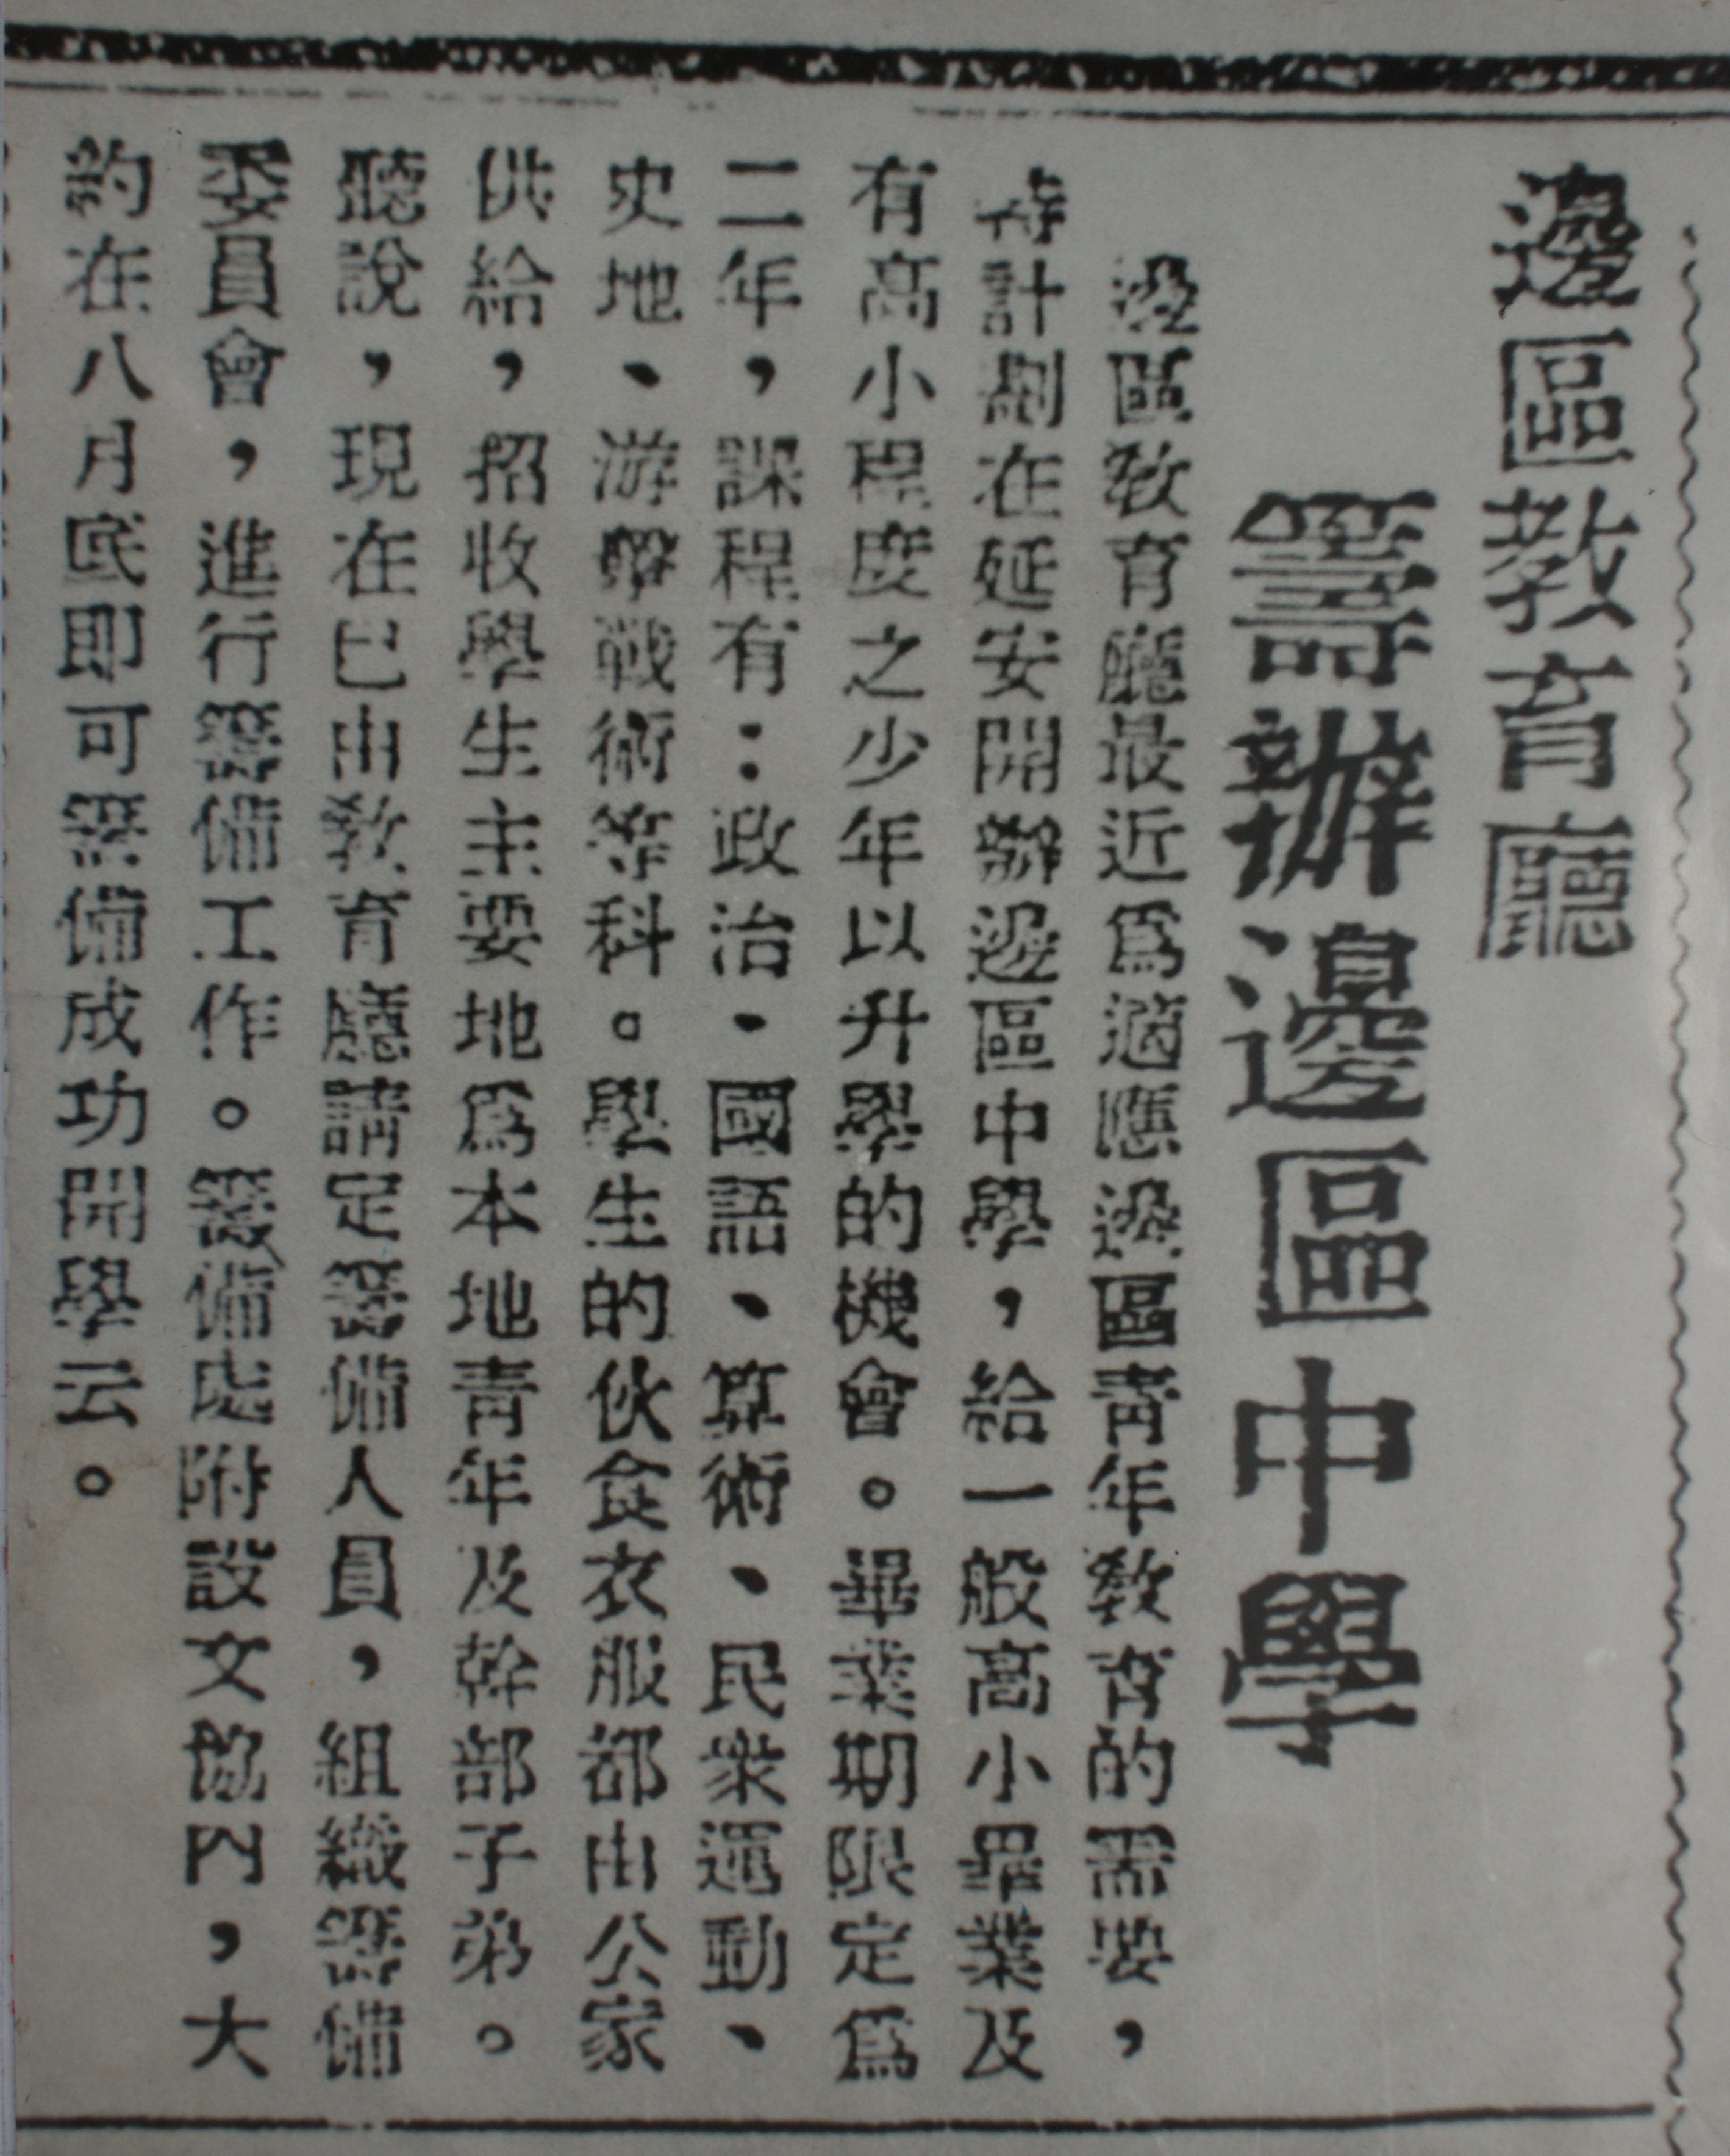 邊區教育廳
籌辦邊區中學
邊區教育廳最近爲適應邊區青年教育的需要，
特計劃在延安開辦邊區中學，給一般高小畢業及
有高小程度之少年以升學的機會。畢業期限定爲
二年，課程有：政治、國語、算術、民衆運動、
史地、游擊戰術等科。學生的伙食衣服都由公家
供給，招收學生主要地爲本地青年及幹部子弟。
聽說，現在已由教育廳請定籌備人員，組織籌備
委員會，進行籌備工作。籌備處附設文協內，大
約在八月底即可籌備成功開學云。